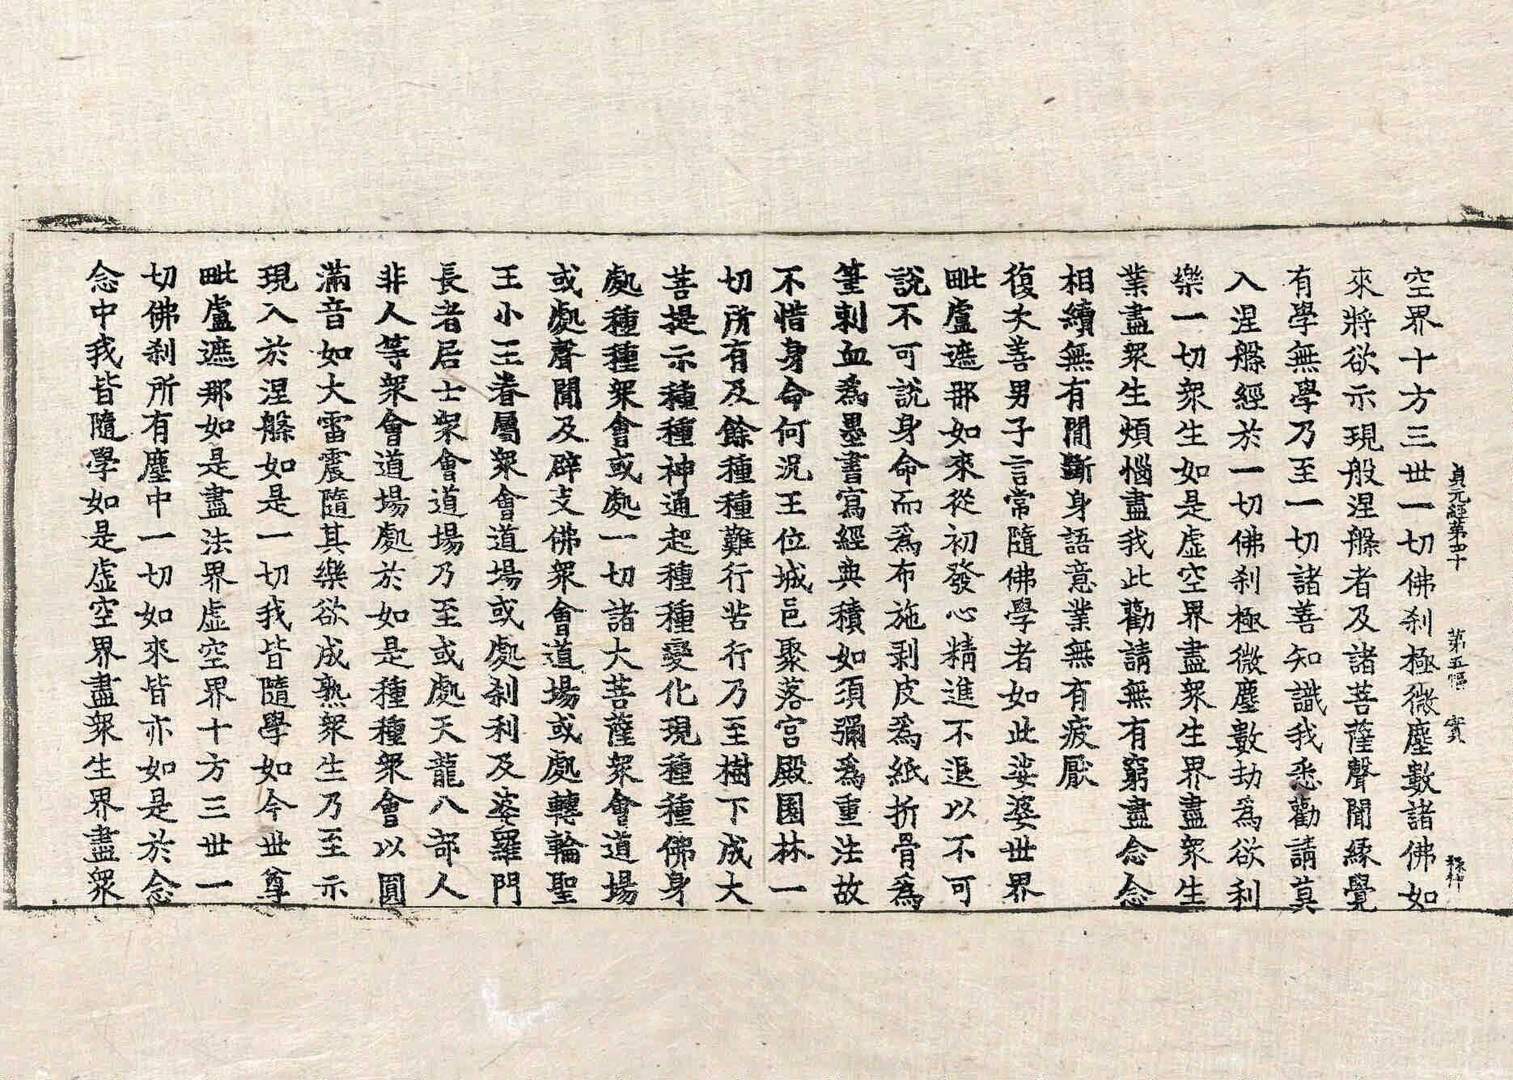 貞元經第四十 第五幅 實
空界十方三世一切佛刹極微塵數諸佛如
來將欲示現般涅槃者及諸菩薩聲聞緣覺
有學無學乃至一切諸善知識我悉勸請莫
入涅槃經於一切佛刹極微塵數劫為欲利
樂一切衆生如是虛空界盡衆生界盡衆生
業盡衆生煩惱盡我此勸請無有窮盡念念
相續無有間斷身語意業無有疲厭
復次善男子言常隨佛學者如此娑婆世界
毗盧遮那如來從初發心精進不退以不可
說不可說身命而為布施剥皮為紙折骨為
筆刺血為墨書寫經典積如須彌為重法故
不惜身命何況王位城邑聚落宮殿園林一
切所有及餘種種難行苦行乃至樹下成大
菩提示種種神通起種種變化現種種佛身
處種種衆會或處一切諸大菩薩衆會道場
或處聲聞及辟支佛衆會道場或處轉輪聖
王小王眷屬衆會道場或處刹利及婆羅門
長者居士衆會道場乃至或處天龍八部人
非人等衆會道場處於如是種種衆會以圓
滿音如大雷震隨其樂欲成熟衆生乃至示
現入於涅槃如是一切我皆隨學如今世尊
毗盧遮那如是盡法界虛空界十方三世一
切佛刹所有塵中一切如來皆亦如是於念
念中我皆隨學如是虛空界盡衆生界盡衆